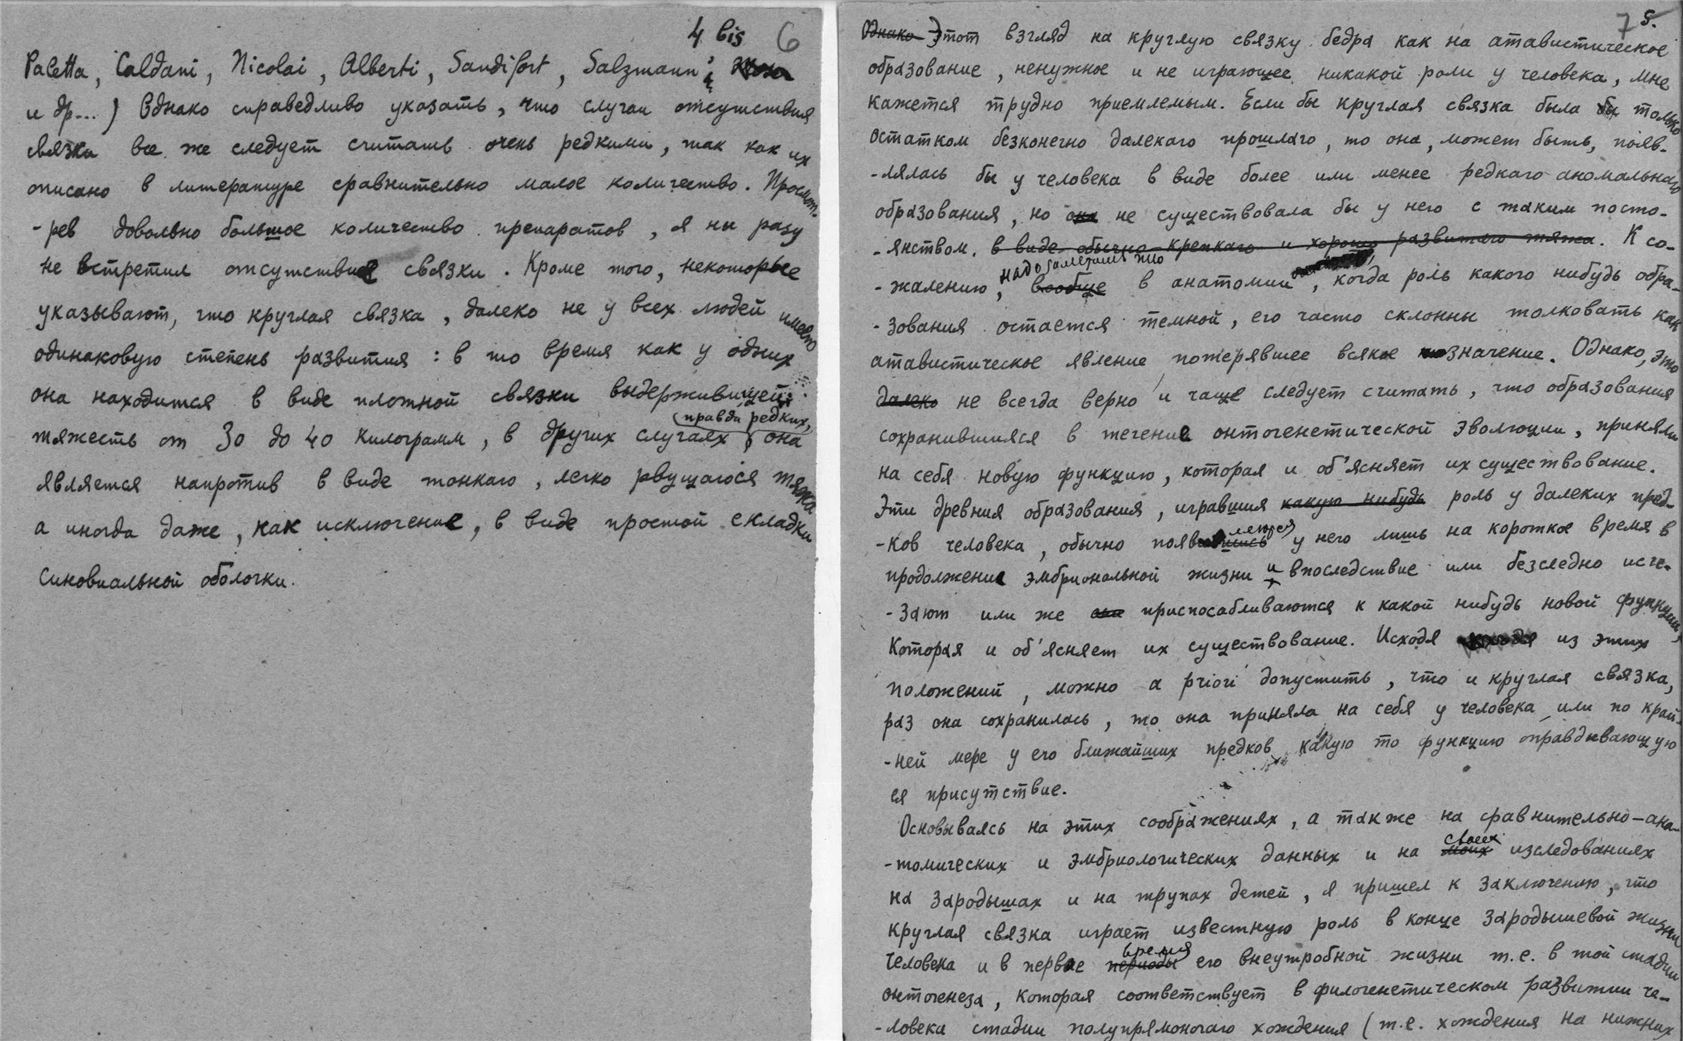 4 bis 6
Paletta, Caldani, Nicolai, Alberti, Sandifort, Salzmann
и др...) Однако справедливо указать, что случаи отсутствия
связки все же следует считать очень редкими, так как их
описано в литературе сравнительно малое количество. Просмот-
-рев довольно большое количество препаратов, я ни разу
не встретил отсутствие связки. Кроме того, некоторые
указывают, что круглая связка, далеко не у всех людей имеет
одинаковую степень развития: в то время как у одних
она находится в виде плотной связки выдерживающей
(правда редких,
тяжесть от 30 до 40 килограмм, в других случаях, она
является напротив в виде тонкаго, легко рвущагося тяжа
а иногда даже, как исключение, в виде простой складки
синовиальной оболочки.
7 5.
Однако Этот взгляд на круглую связку бедра как на атавистическое
образование, ненужное и не играющее никакой роли у человека, мне
кажется трудно приемлемым. Если бы круглая связка была бы только
остатком безконечно далекаго прошлаго, то она, может быть, появ-
-лялась бы у человека в виде более или менее редкаго аномальнаго
образования, но она не существовала бы у него с таким посто-
-янством. в виде обычно крепкаго и хорошо развитого тяжа. К со-
надо заметить что
-жалению, вообще в анатомии, когда роль какого нибудь обра-
-зования остается темной, его часто склонны толковать как
атавистическое явление потерявшее всякое значение. Однако, это
далеко не всегда верно и чаще следует считать, что образования
сохранившияся в течение онтогенетической эволюции, приняли
на себя новую функцию, которая и об'ясняет их существование.
Эти древния образования, игравшия какую нибудь роль у далеких пред-
-ков человека, обычно появляются у него лишь на короткое время в
продолжение эмбриональной жизни и впоследствие или безследно исче-
-зают или же они приспосабливаются к какой нибудь новой функции,
которая и об'ясняет их существование. Исходя из этих
положений, можно a priori допустить, что и круглая связка,
раз она сохранилась, то она приняла на себя у человека или по край-
-ней мере у его ближайших предков, какую то функцию оправдывающую
ея присутствие.
Основываясь на этих соображениях, а также на сравнительно-ана-
своих
-томических и эмбриологических данных и на моих изследованиях
на зародышах и на трупах детей, я пришел к заключению, что
круглая связка играет известную роль в конце зародышевой жизни
время
человека и в первое периоды его внеутробной жизни т.е. в той стадии
онтогенеза, которая соответствует в филогенетическом развитии че-
-ловека стадии полупрямоногаго хождения (т.е. хождения на нижних